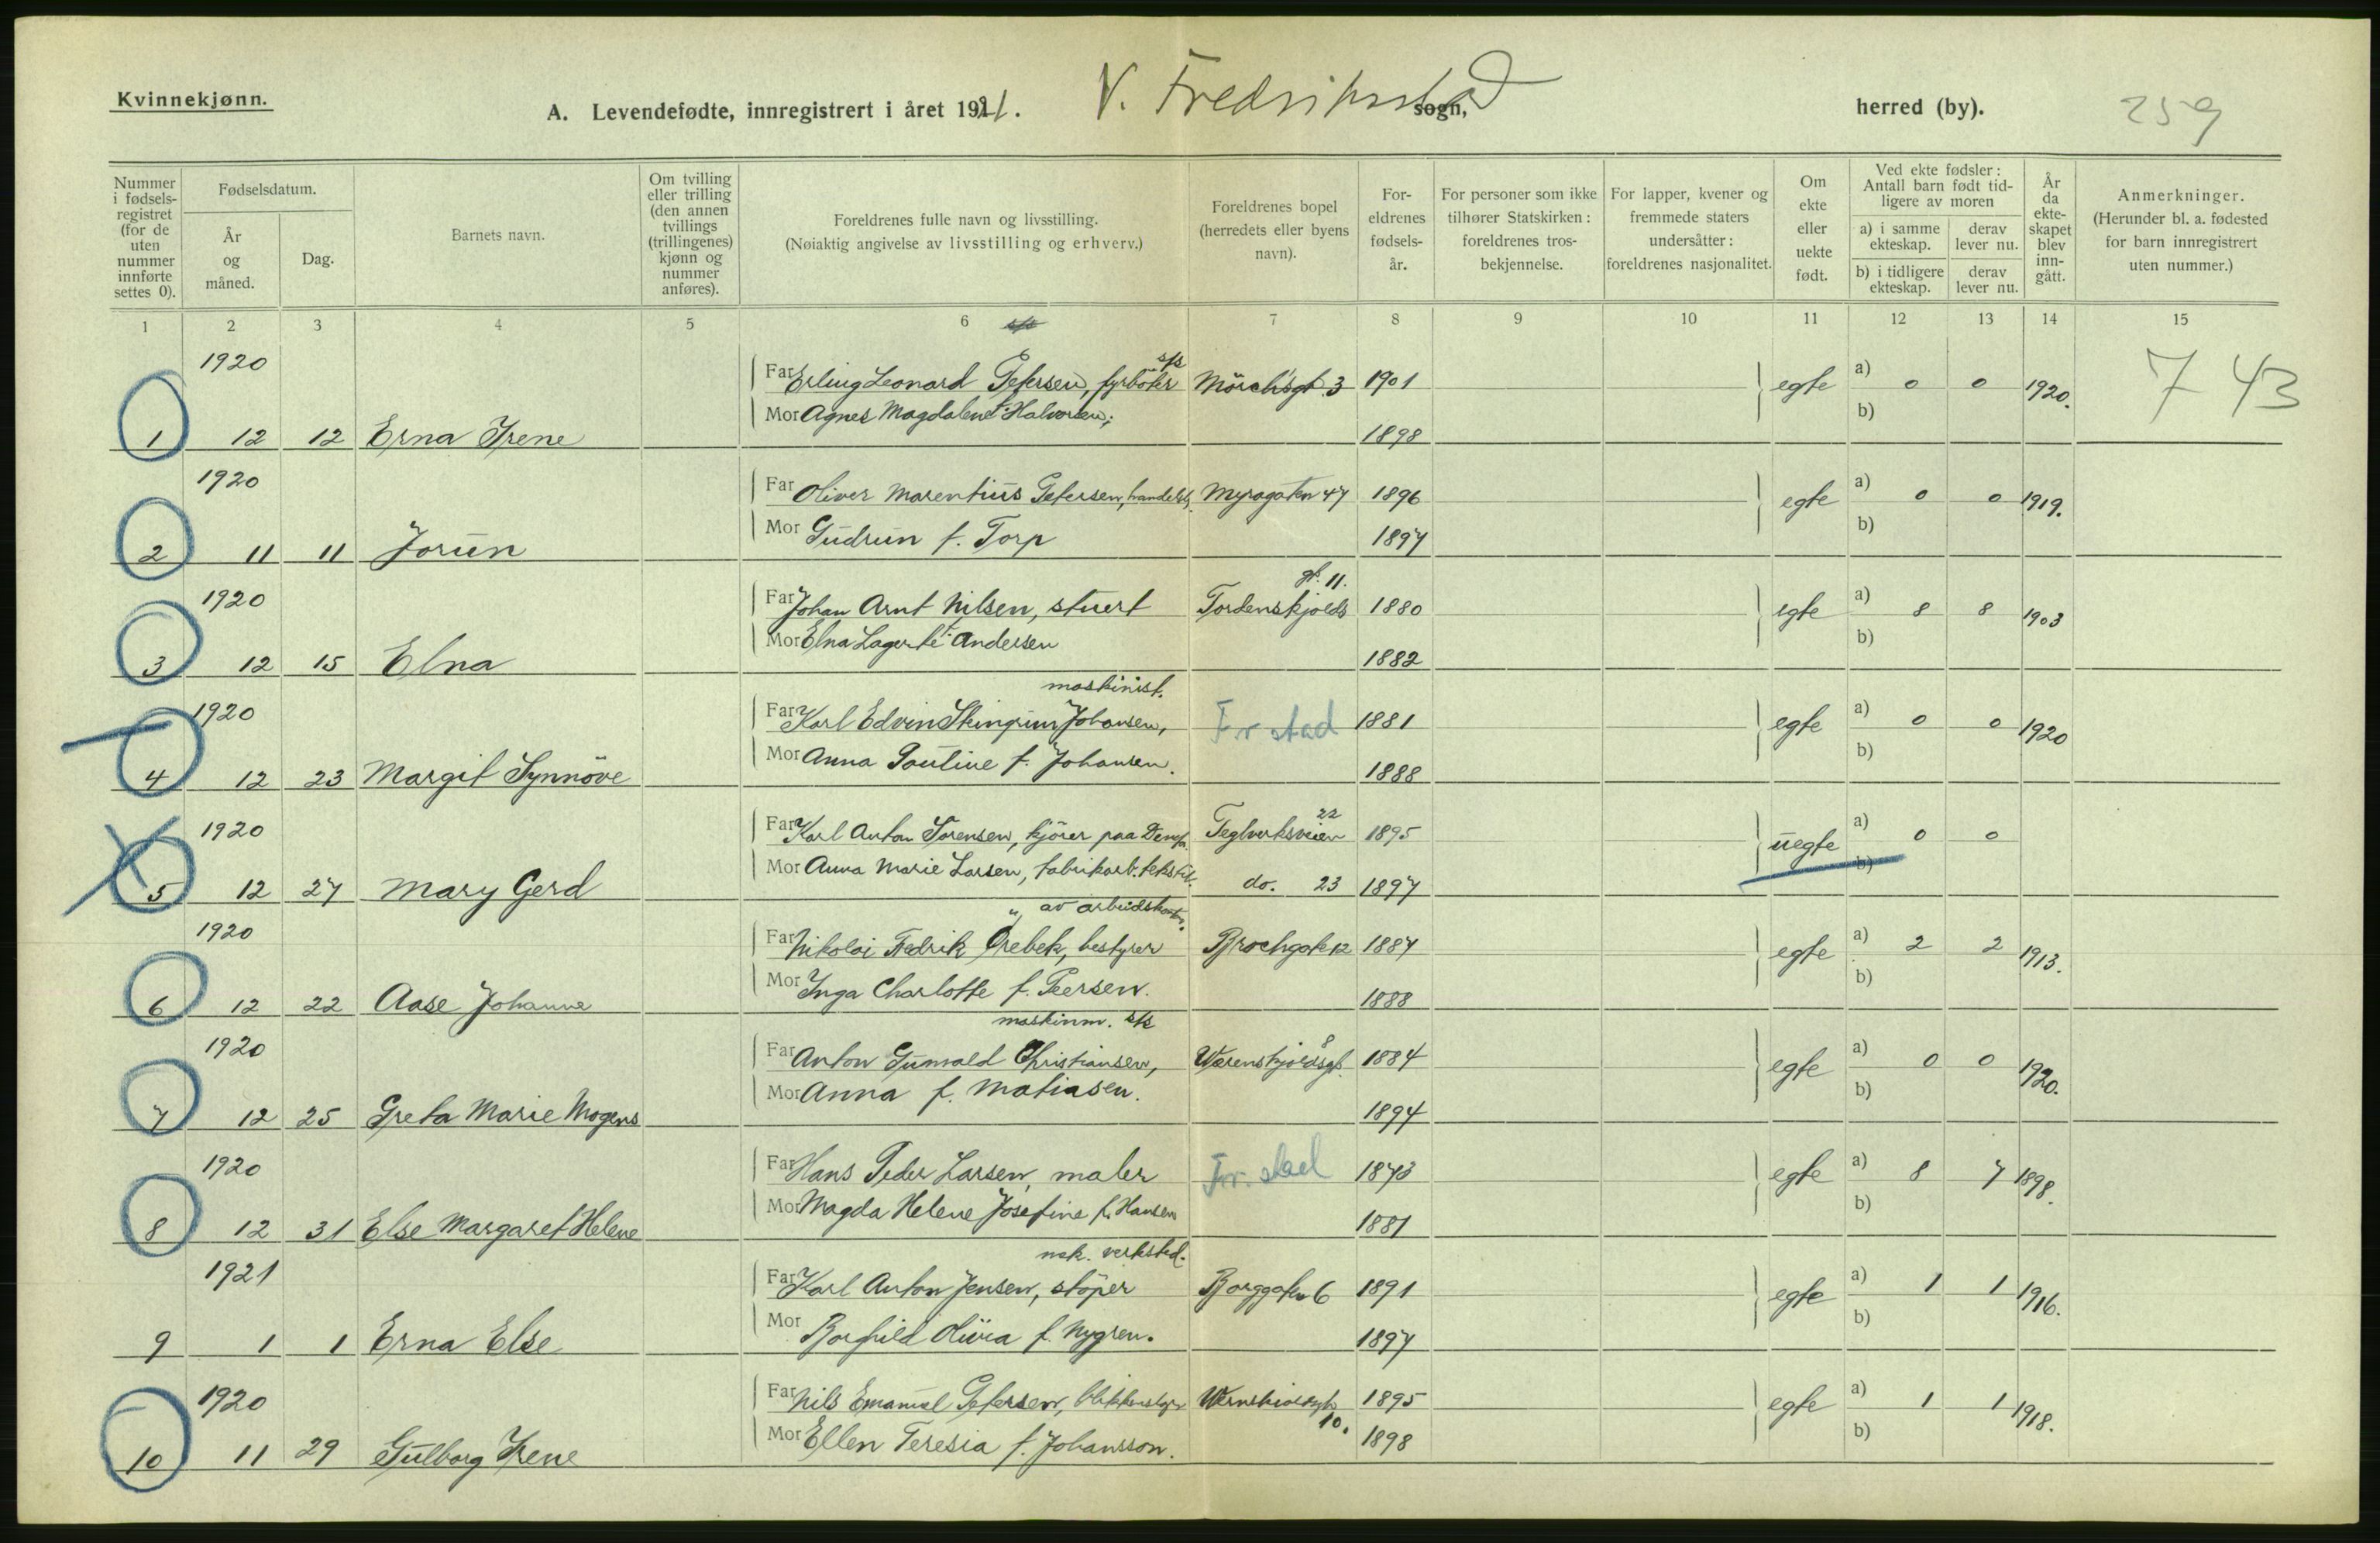 Kvinnekjønn.
A. Levendefødte, innregistrert i året 1921.
V. Fredriksstad sogn,
herred (by).
259
Nummer i fødsels-registret (for de uten nummer innførte settes 0).
Fødselsdatum.
År og måned.
Dag.
Barnets navn.
Om tvilling eller trilling (den annen tvillings (trillingenes) kjønn og nummer anføres).
Foreldrenes fulle navn og livsstilling.
(Nøiaktig angivelse av livsstilling og erhverv.)
Foreldrenes bopel (herredets eller byens navn).
For-eldrenes fødsels-år.
For personer som ikke tilhører Statskirken: foreldrenes tros-bekjennelse.
For lapper, kvener og fremmede staters undersåtter: foreldrenes nasjonalitet.
Om ekte eller uekte født.
Ved ekte fødsler: Antall barn født tid-ligere av moren
a) i samme ekteskap.
derav lever nu.
b) i tidligere ekteskap.
derav lever nu.
År da ekte-skapet blev inn-gått.
Anmerkninger.
(Herunder bl. a. fødested for barn innregistrert uten nummer.)
1 2 3 4 5 6 7 8 9 10 11 12 13 14 15
1920
s/s
Far Erling Leonard Petersen, fyrböter Mörchsgt. 3 1901 egte a) 0 0 1920. 743
Mor Agnes Magdalene f. Halvorsen; b)
1 12 12 Erna Irene 1898
1920
Far Oliver Marentius Petersen, Myragaten 47 1896 egte a) 0 0 1919.
Mor Gudrun f. Torp 1897 b)
2 11 11 Jorun
gt. 11.
1920
Far Johan Arnt Nilsen, stuert Tordenskjolds 1880 egte a) 8 8 1903
Mor Elna f. Andersen b)
3 12 15 Elna 1882
maskinist.
1920
Far Karl Edvin Johansen, Fr stad 1881 egte a) 0 0 1920
Mor Anna Pauline f. Johansen. b)
4 12 23 Margit Synnöve 1888
22
1920
Far Karl Anton Sörensen, kjörer paa Teglverksveien 1895 uegte a) 0 0
Mor Anna Marie Larsen, fabrikarb. tekstil. do. 23 1897 b)
5 12 27 Mary Gerd
" av arbeidskont.
1920
Far Nikolai Fredrik Örebek, bestyrer Brochgate 12 1887 egte a) 2 2 1913.
Mor Inga Charlotte f. Peersen. b)
6 12 22 Aase Johanne 1888
maskinm. s/s
1920
8
Far Anton Gunvald Christiansen, Wærenskjoldsgt. 1884 egte a) 0 0 1920.
Mor Anna f. Matiasen. b)
7 12 25 Greta Marie Mogens 1894
1920
Far Hans Peder Larsen, maler Fr. stad 1873 egte a) 8 7 1898.
Mor Magda Helene Josefine f. Hansen b)
8 12 31 Else Margaret Helene 1881
mek. verksted.
1921
Far Karl Anton Jensen, stöper Borggaten 6 1891 egte a) 1 1 1916.
Mor Borghild Olivia f. Nygren. 1897 b)
9 1 1 Erna Else
1920
Far Nils Emanuel Petersen, blikkenslager 1895 egte a) 1 1 1918.
10.
Mor Ellen Teresia f. Johansson. 1898 b)
10 11 29 Gulborg Irene